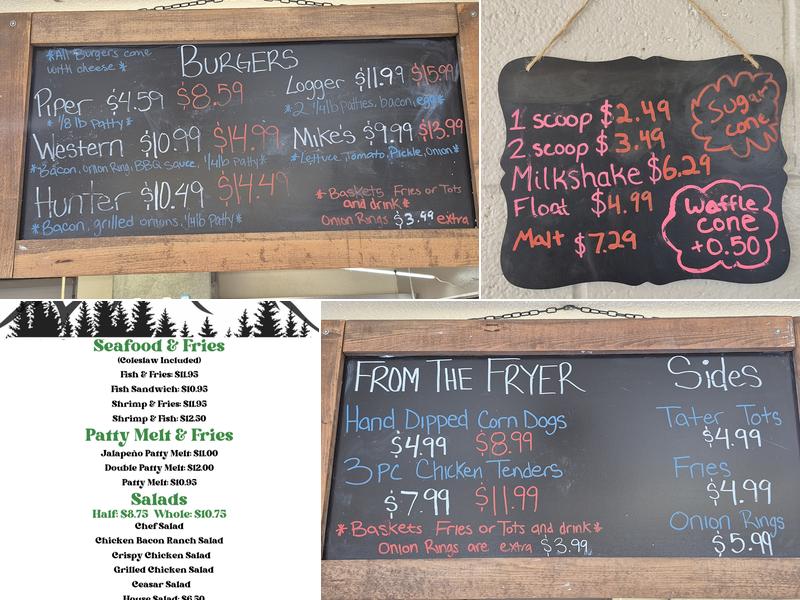 *All Burgers come
with cheese*
BURGERS
Piper $4.59 $8.59
*1/8 lb Patty*
Western $10.99 $14.99
*Bacon, Onion Ring, BBQ sauce, 1/4lb Patty*
Hunter $10.49 $14.49
*Bacon, grilled onions, 1/4lb Patty*
Logger $11.99 $15.99
*2 1/4lb patties, bacon, egg*
Mike's $9.99 $13.99
*Lettuce, Tomato, Pickle, Onion*
*Baskets, Fries or Tots
and drink*
Onion Rings $3.99 extra
1 scoop $2.49
2 scoop $3.49
Milkshake $6.29
Float $4.99
Malt $7.29
Sugar
cone
Waffle
cone
+0.50
Seafood & Fries
(Coleslaw Included)
Fish & Fries: $11.95
Fish Sandwich: $10.95
Shrimp & Fries: $11.95
Shrimp & Fish: $12.50
Patty Melt & Fries
Jalapeño Patty Melt: $11.00
Double Patty Melt: $12.00
Patty Melt: $10.95
Salads
Half: $8.75 Whole: $10.75
Chef Salad
Chicken Bacon Ranch Salad
Crispy Chicken Salad
Grilled Chicken Salad
Ceasar Salad
House Salad: $6.50
FROM THE FRYER
Hand Dipped Corn Dogs
$4.99 $8.99
3 PC Chicken Tenders
$7.99 $11.99
*Baskets Fries or Tots and drink*
Onion Rings are extra $3.99
Sides
Tater Tots
$4.99
Fries
$4.99
Onion Rings
$5.99